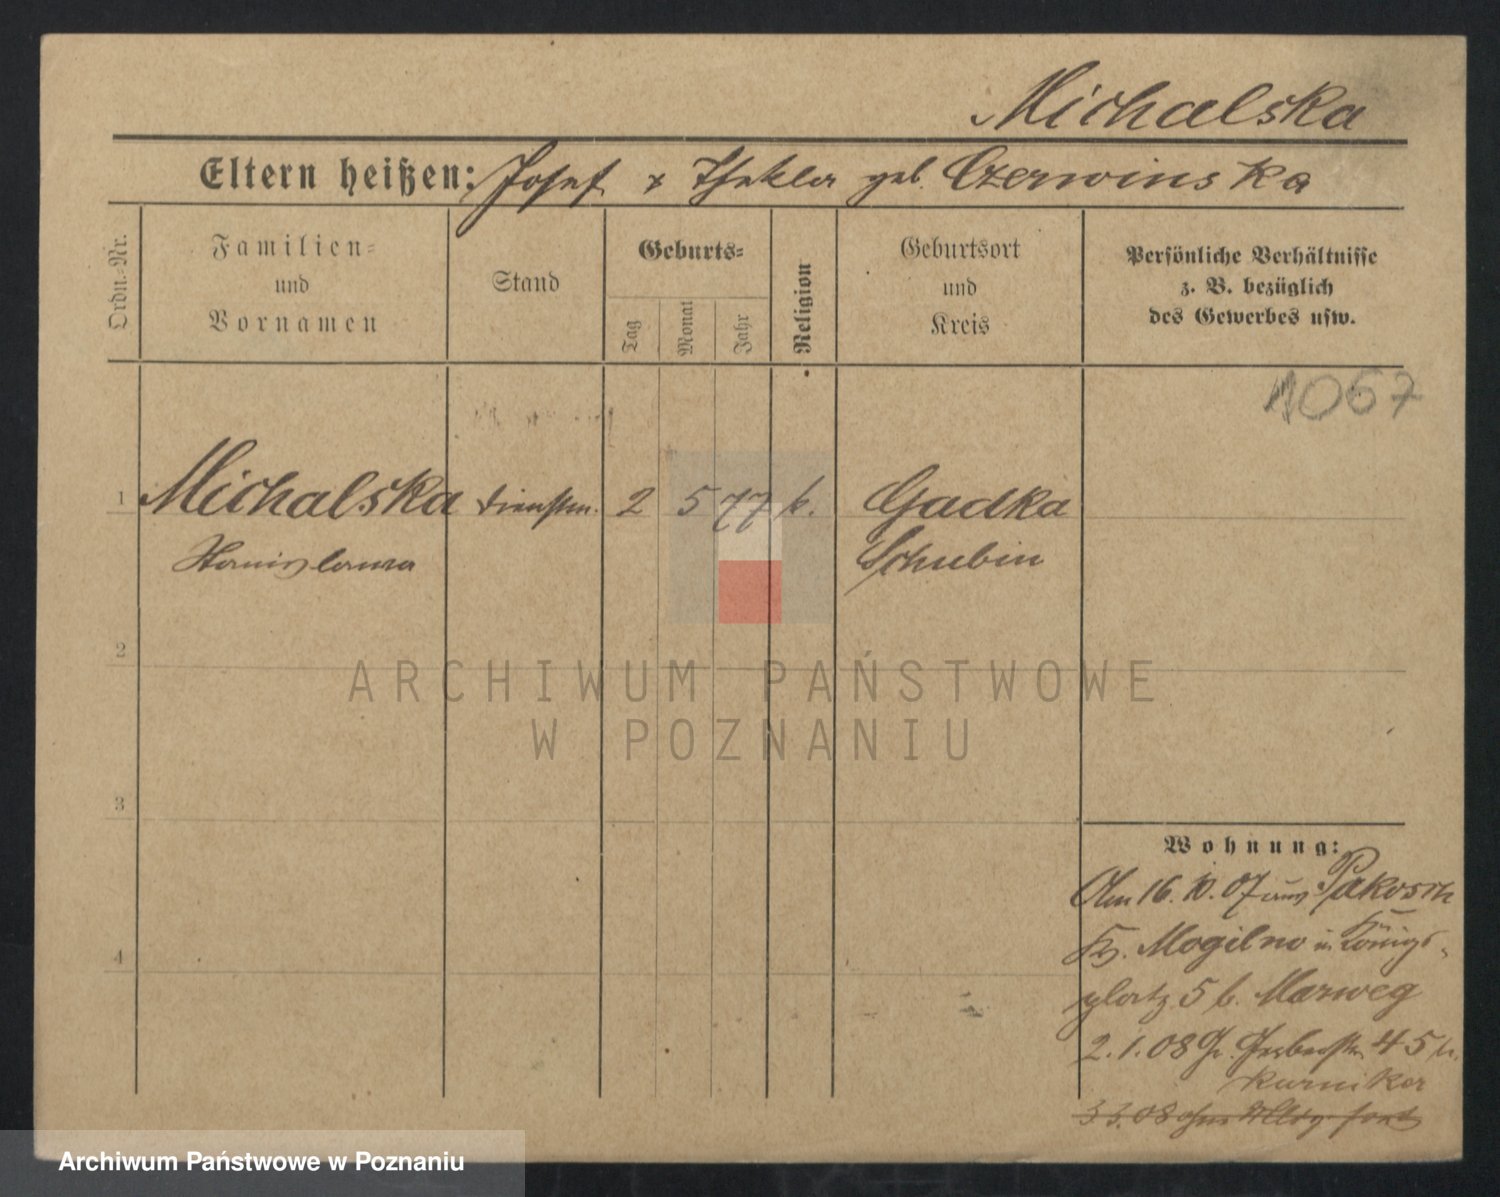 Michalska
Eltern heißen: Josef & Thekla geb. Czerwinska
Ordn.-Nr.
Familien-
und
Vornamen
Stand
Geburts-
Tag
Monat
Jahr
Religion
Geburtsort
und
Kreis
Persönliche Verhältnisse
z. B. bezüglich
des Gewerbes usw.
1067
1 Michalska Dienstm. 2 5 77 k. Gadka
Stanislawa Schubin
2
ARCHIWUM PAŃSTWOWE
W POZNANIU
3
4
Wohnung:
Am 16.10.07 aus Pakosch
Kr. Mogilno in Königs-
platz 5 b. Marweg
2.1.08 Gr. Gerberstr. 45 b.
Kurniker
3.3.08 ohne Abldg. fort
Archiwum Państwowe w Poznaniu